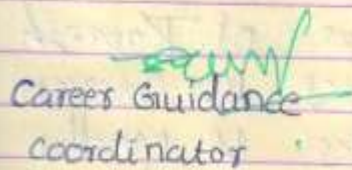 Career Guidance
coordinator